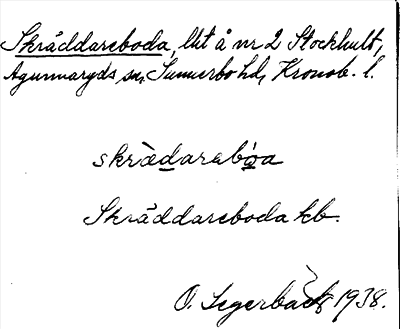 Skräddareboda, lht å nr 2 Stockhult,
Agunnaryds sn, Sunnerbo hd, Kronob. l.
skrædarabǫa
Skräddareboda kb.
O. Segerbäck 1938.